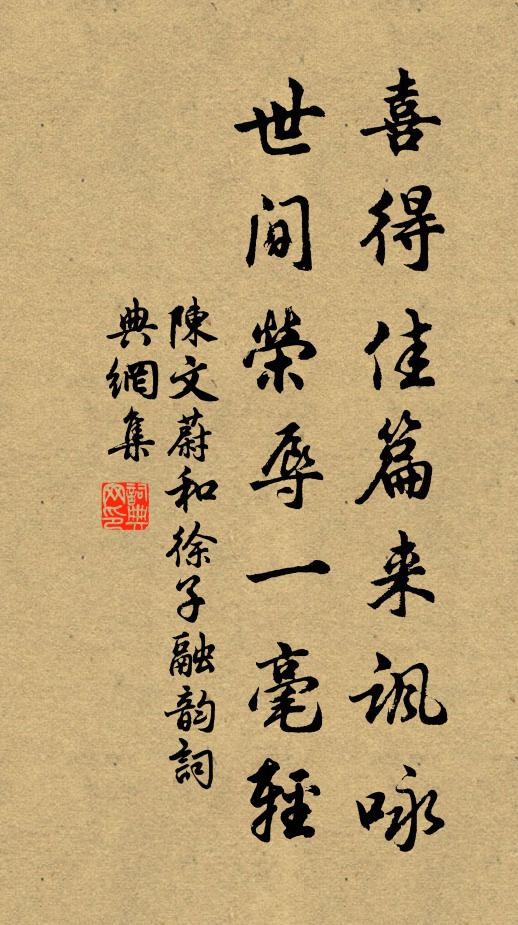 喜得佳篇来讽咏
世间荣辱一毫輕
陳文蔚和徐子融韵詞
典網集
詞典網印